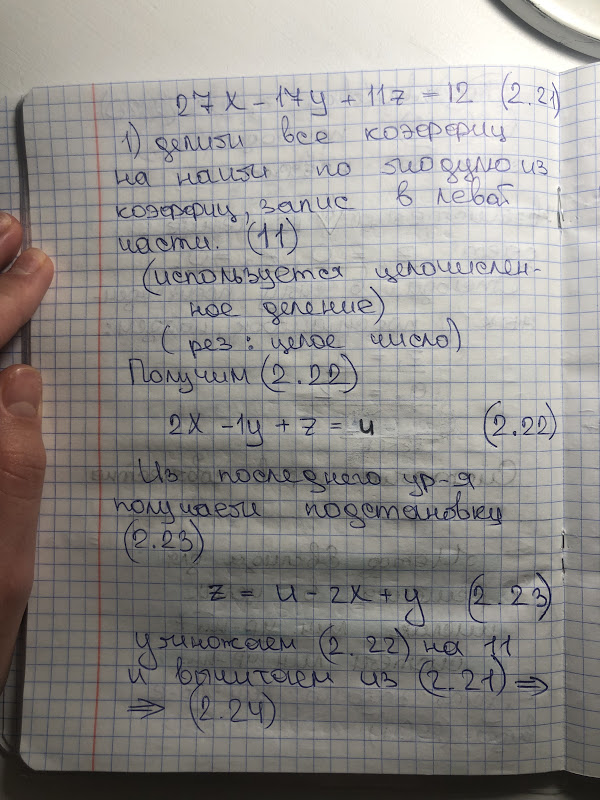 27x - 17y + 11z = 12 (2.21)
1) делим все коэффиц
на наим по модулю из
коэффиц, запис в левой
части. (11)
(используется целочислен-
ное деление)
(рез: целое число)
Получим (2.22)
2x - 1y + z = u (2.22)
Из последнего ур-я
получаем подстановку
(2.23)
z = u - 2x + y (2.23)
умножаем (2.22) на 11
и вычитаем из (2.21) ⇒
⇒ (2.24)